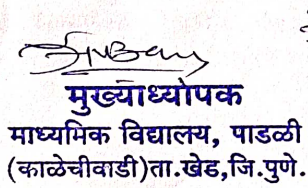 मुख्याध्योपक
माध्यमिक विद्यालय, पाडळी
(काळेचीवाडी)ता.खेड,जि.पुणे.